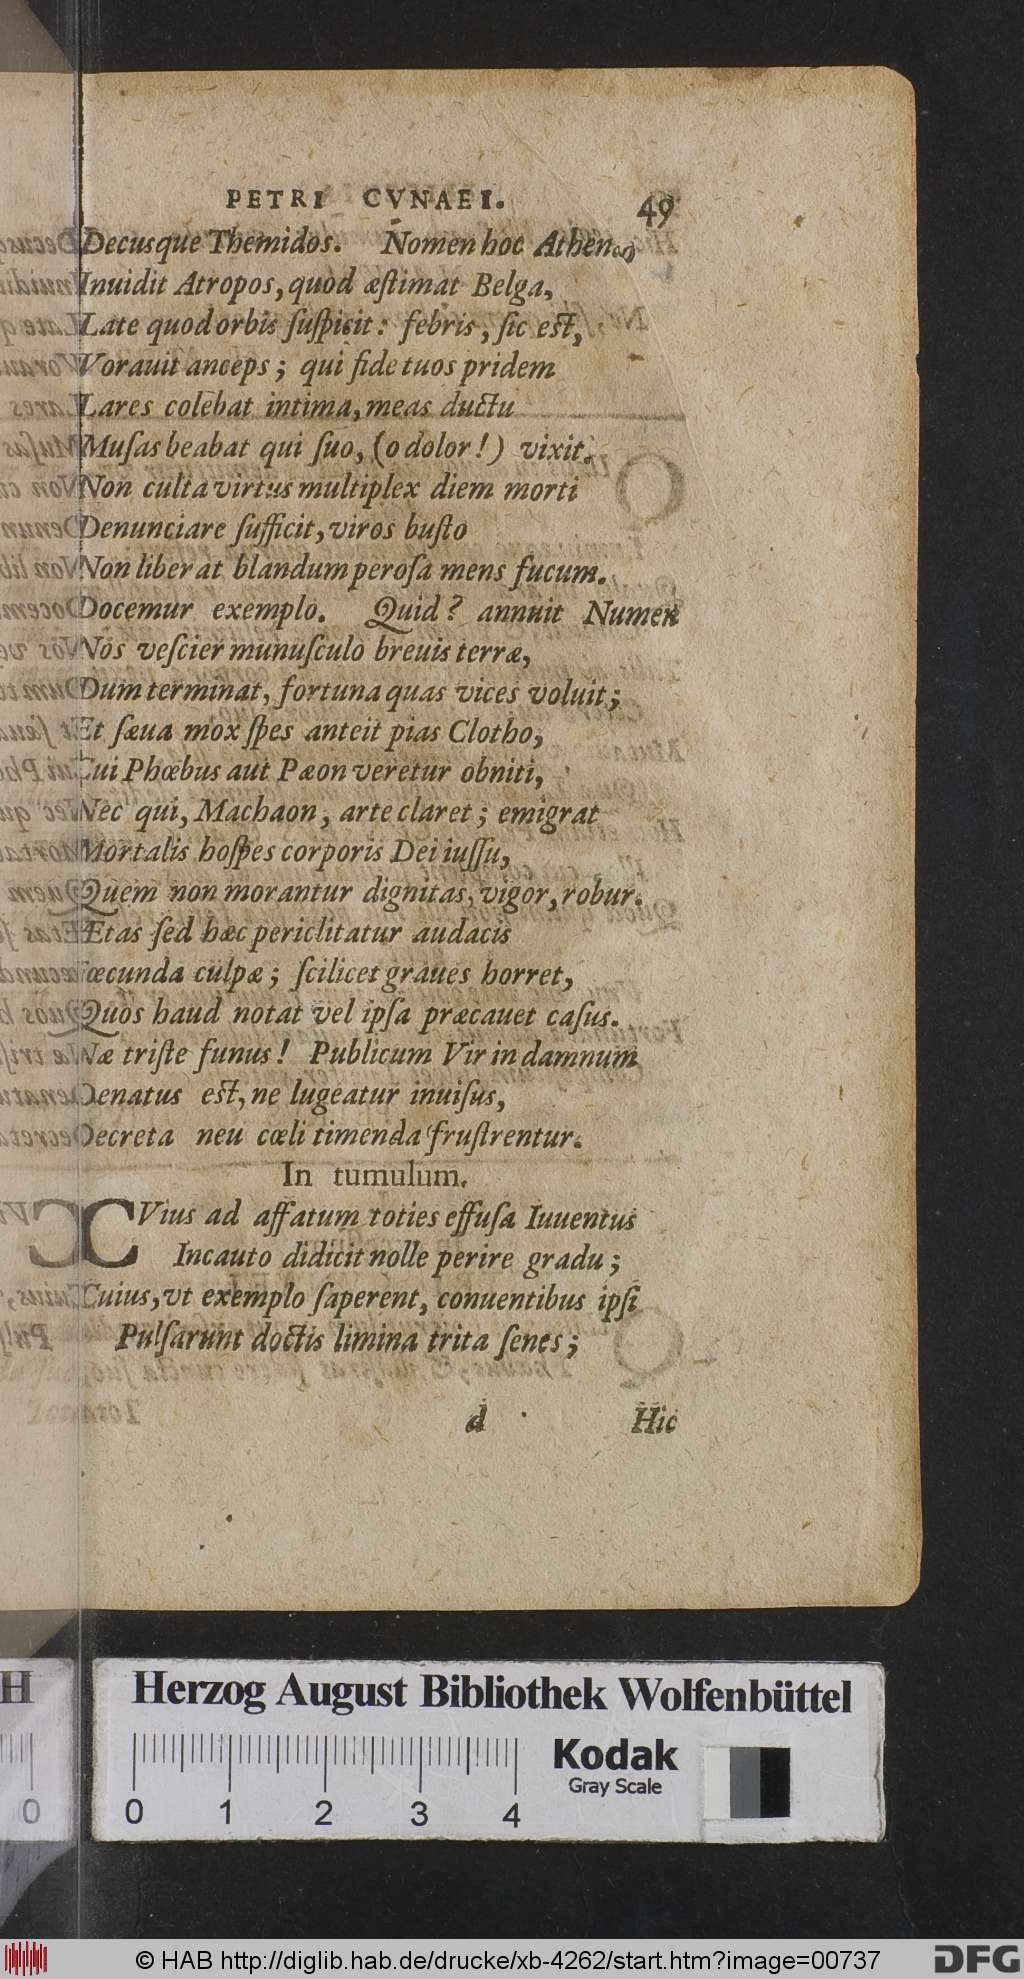 PETRI CVNAEI. 49
Decusque Themidos. Nomen hoc Athenæ
Inuidit Atropos, quod æſtimat Belga,
Late quod orbis ſuſpicit: febris, ſic eſt,
Vorauit anceps; qui fide tuos pridem
Lares colebat intima, meas ductu
Muſas beabat qui ſuo, (o dolor!) vixit.
Non culta virtus multiplex diem morti
Denunciare ſufficit, viros buſto
Non liberat blandum peroſa mens fucum.
Docemur exemplo. Quid? annuit Numen
Nos veſcier munuſculo breuis terræ,
Dum terminat, fortuna quas vices voluit;
Et ſæua mox ſpes anteit pias Clotho,
Cui Phœbus aut Pæon veretur obniti,
Nec qui, Machaon, arte claret; emigrat
Mortalis hoſpes corporis Dei iuſſu,
Quem non morantur dignitas, vigor, robur.
Ætas ſed hæc periclitatur audacis
Fœcunda culpæ; ſcilicet graues horret,
Quos haud notat vel ipſa præcauet caſus.
Næ triſte funus! Publicum Vir in damnum
Denatus eſt, ne lugeatur inuiſus,
Decreta neu cœli timenda fruſtrentur.
In tumulum.
CVius ad affatum toties effuſa Iuuentus
Incauto didicit nolle perire gradu;
Cuius, vt exemplo ſaperent, conuentibus ipſi
Pulſarunt doctis limina trita ſenes;
d Hic
Herzog August Bibliothek Wolfenbüttel
Kodak
Gray Scale
0 0 1 2 3 4
© HAB http://diglib.hab.de/drucke/xb-4262/start.htm?image=00737
DFG